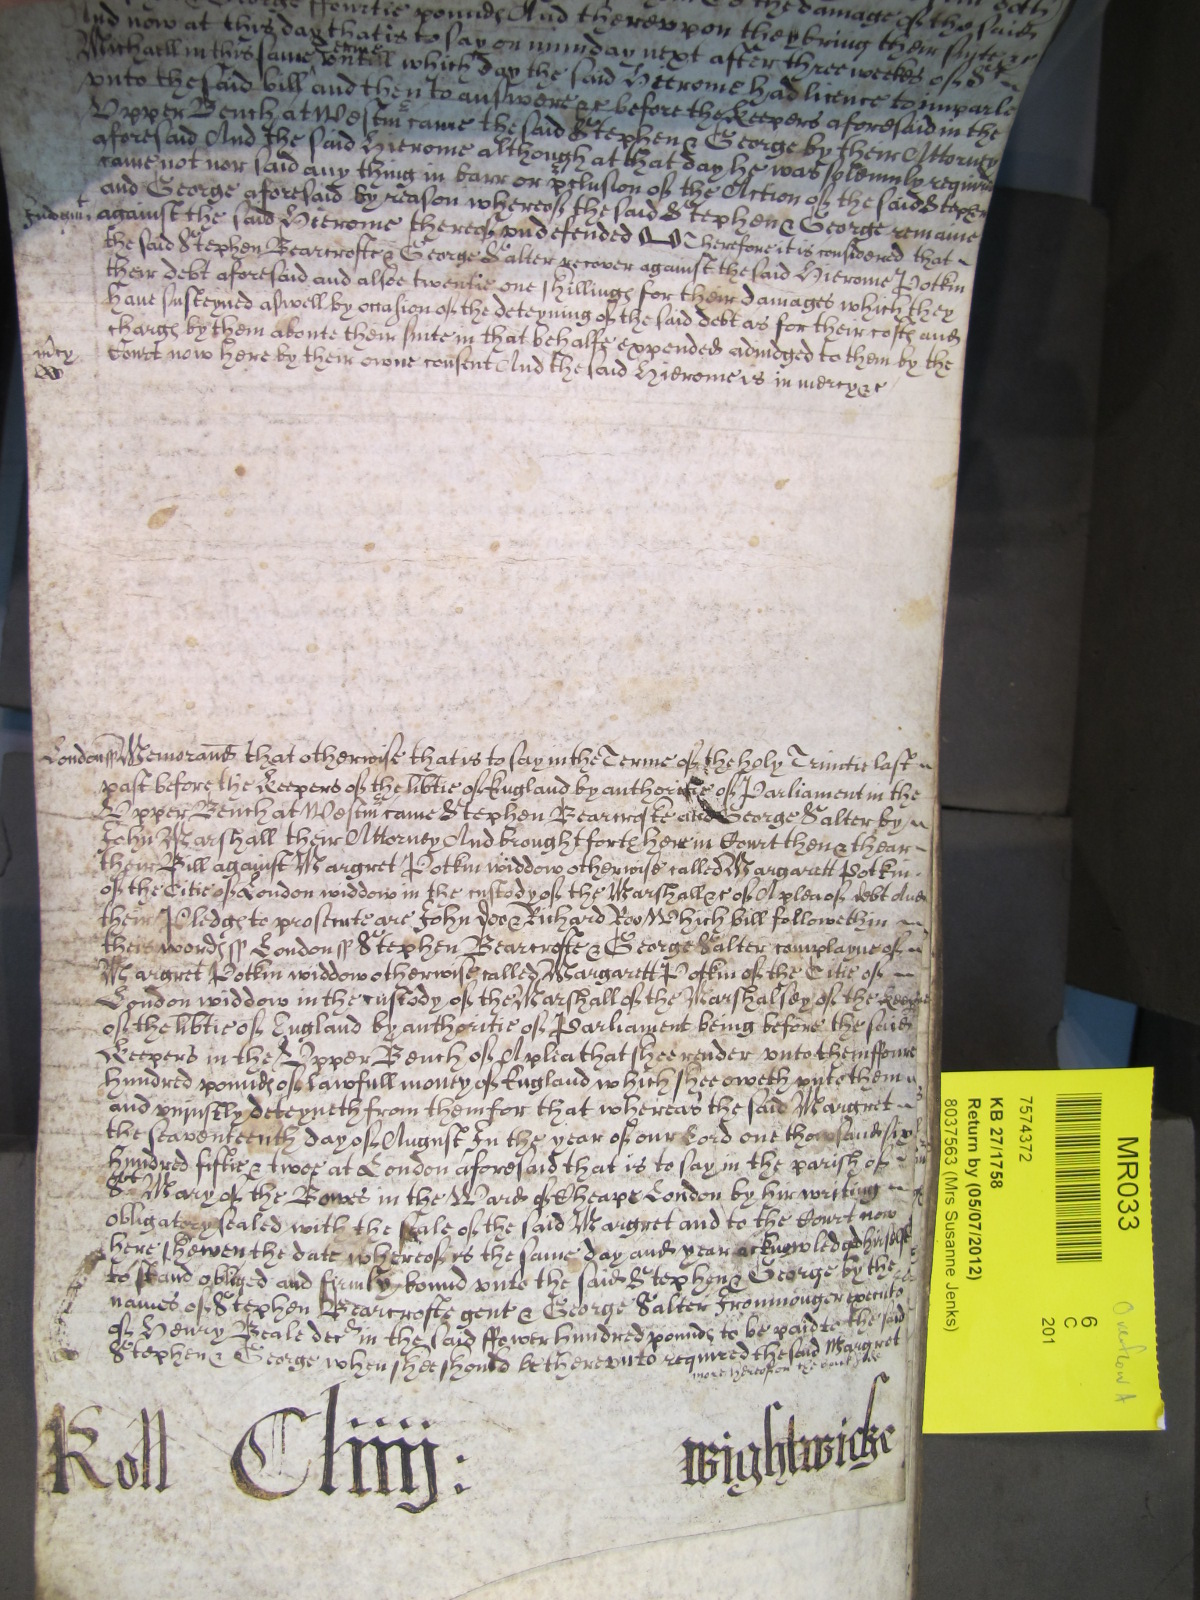 George ffourtie pounds And thereupon they bring their suite &c
And now at this day that is to say on munday next after three weekes of St
Michaell in this same Terme untill which day the said Hierome had licence to imparle
unto the said bill and then to answere &c before the Keepers aforesaid in the
Upper Bench at Westm came the said Stephen & George by their Attorney
aforesaid And the said Hierome although at that day he was solemnly required
came not nor said any thing in barr or pclusion of the Action of the said Stephen
and George aforesaid by reason whereof the said Stephen & George remaine
Judgmt against the said Hierome thereof undefended Therefore it is considered that
the said Stephen Bearcrofte & George Salter recover against the said Hierome Potkin
their debt aforesaid and alsoe twentie one shillings for their damages which they
have susteyned aswell by occasion of the deteyning of the said debt as for their costs and
charges by them aboute their suite in that behalfe expended adiudged to them by the
mcy Court now here by their owne consent And the said Hierome is in mercy &c
London ss Memorand that otherwise that is to say in the Terme of the holy Trinitie last
past before the Keepers of the libtie of England by authoritie of Parliament in the
Upper Bench at Westm came Stephen Bearcrofte and George Salter by
John Marshall their Attorney And brought forth here in Court then & thear
their Bill against Margret Potkin widdow otherwise called Margarett Potkin
of the Citie of London widdow in the custody of the Marshall &c of A plea of debt And
their Pledges to prosecute are John Doo & Richard Roo Which bill followeth in
theis words ss London ss Stephen Bearcrofte & George Salter complayne of
Margret Potkin widdow otherwise called Margarett Potkin of the Citie of
London widdow in the custody of the Marshall of the Marshalsey of the Keepers
of the libtie of England by authoritie of Parliament being before the said
Keepers in the Upper Bench of A plea that shee render unto them ffowre
hundred pounds of lawfull money of England which shee oweth unto them
and uniustly deteyneth from them for that whereas the said Margret
the seaventeenth day of August In the year of our Lord one thousand six
hundred fiftie & twoe at London aforesaid that is to say in the parish of
St Mary of the Bowe in the Ward of Cheape London by hir writing
obligatory sealed with the seale of the said Margret and to the Court now
here shewen the date whereof is the same day and year acknowledged hirselfe
to stand obliged and firmly bound unto the said Stephen & George by the
names of Stephen Bearcrofte gent & George Salter Ironmonger executo
of Henry Beale decd in the said ffower hundred pounds to be paid to the said
Stephen & George when shee should be thereunto required the said Margret
more hereof on the
Roll Cliiij:
Wightwicke
MR033
7574372
KB 27/1758
Return by (05/07/2012)
8037563 (Mrs Susanne Jenks)
6
C
201
Overflow A